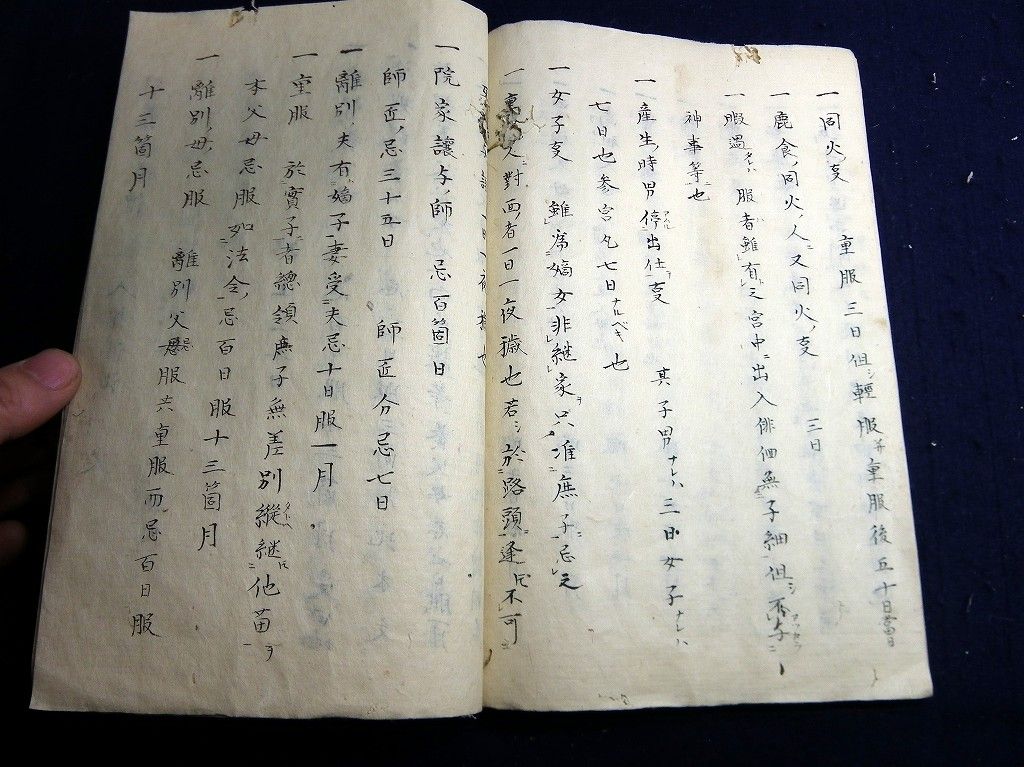 一同火ノ支　重服三日但シ輕服并重服後五十日當日
三日
一鹿食ノ同火ノ人ニ又同火ノ支
一暇過タレハ服者雖有之宮中ニ出入俳佪無子細但シ不与ニ
神事等ニ也
一産生ノ時男停出仕ヲ支　其子男ナレハ三日女子ナレハ
七日也参宮凡七日ナルベキ也
一女子支　雖為嫡女非継家ヲ只准庶子ニ忌之
一 人ニ對面ノ者一日一夜穢也若シ於路頭ニ逢 不可
一院家讓与ノ師　忌百箇日
師匠ノ忌三十五日　師匠分忌七日
一離別ノ夫有嫡子妻受夫忌十日服一月
一重服　於實子者總領庶子無差別縦継 他苗ヲ
本父母忌服如法令ノ忌百日服十三箇月
一離別ノ母ノ忌服　離別父忌服共重服而忌百日服
十三箇月